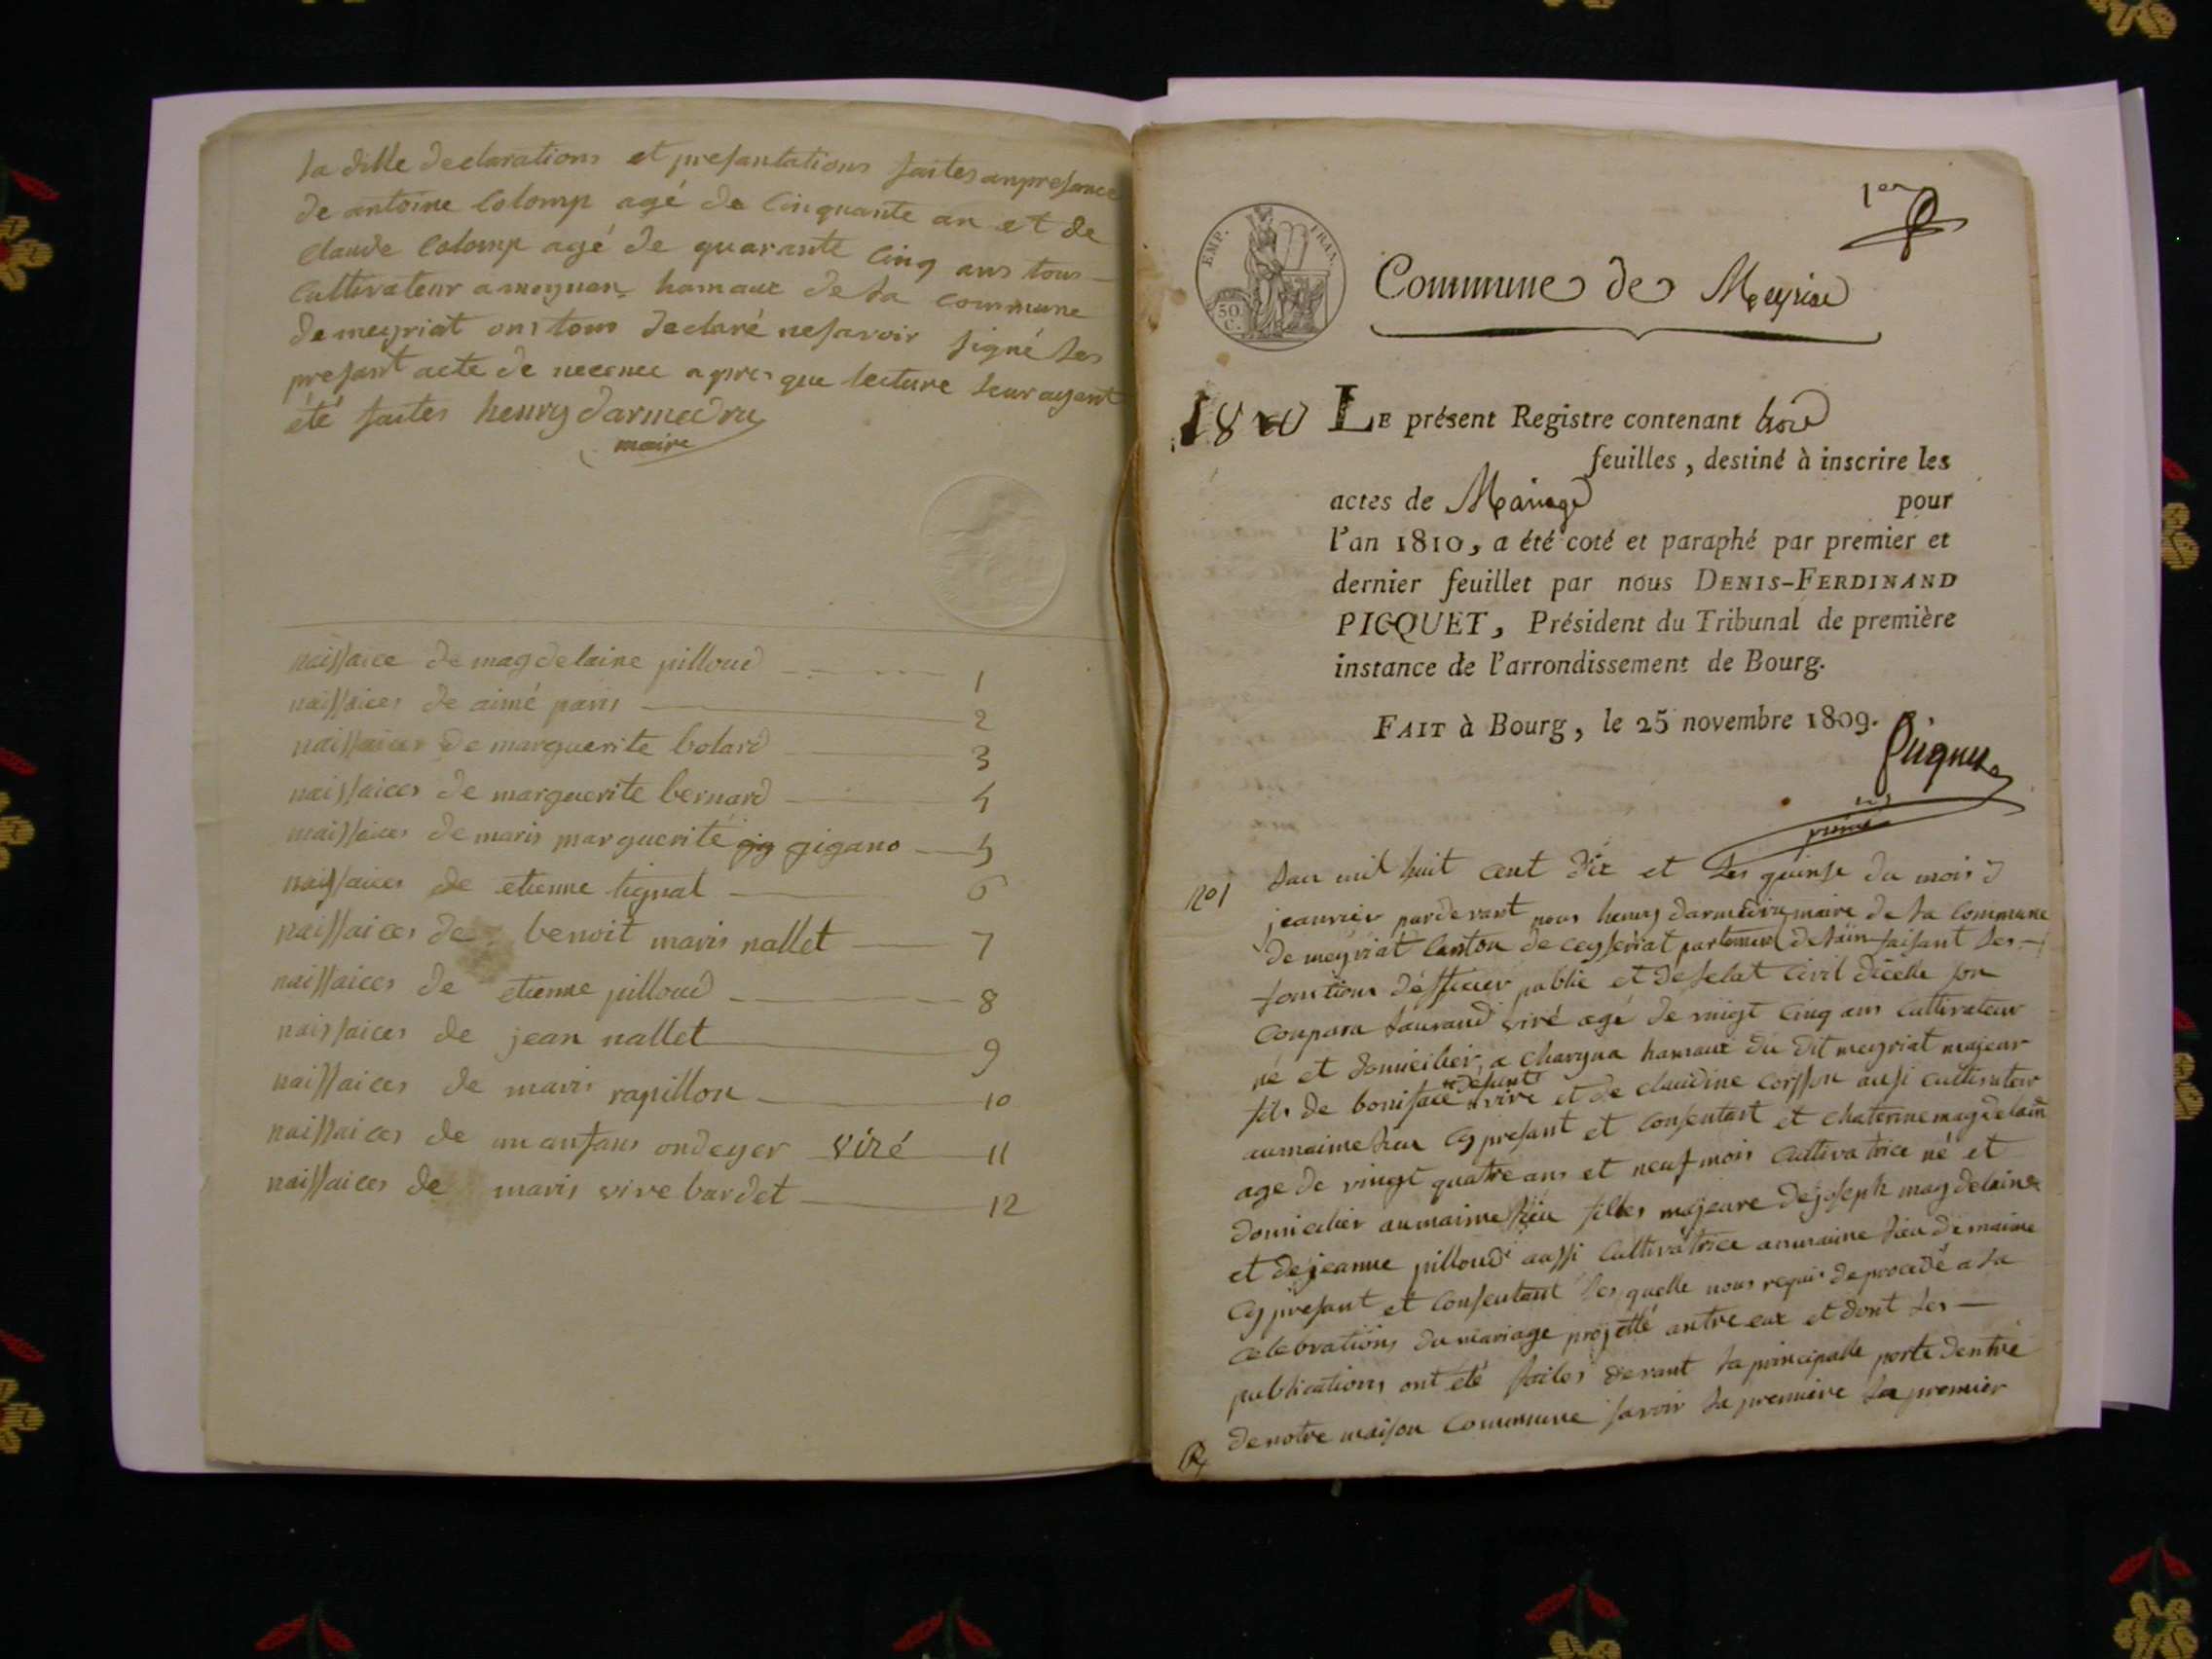 la ditte declarations et presantations faites an presance
de antoine Colomp agé de Cinquante an et de
Claude Colomp agé de quarante Cinq ans tous
Cultivateur a moynan hamaux de la commune
de meyriat ons tous declaré ne savoir signé les
presant acte de apres que lecture leur ayant
été faites henry darmedru
maire
naissaice de magdelaine pilloud 1
naissaices de aimé paris 2
naissaices de marguerite bolard 3
naissaices de marguerite bernard 4
naissaices de maris marguerite gig gigano 5
naissaices de etienne tignat 6
naissaices de benoit maris nallet 7
naissaices de etienne pilloud 8
naissaices de jean nallet 9
naissaices de maris rapillon 10
naissaices de un anfans ondeyer viré 11
naissaices de maris vive bardet 12
1er
EMP. FRAN.
50 C.
Commune de Meyriat
1810 LE présent Registre contenant trois
feuilles, destiné à inscrire les
actes de Mariage pour
l'an 1810, a été coté et paraphé par premier et
dernier feuillet par nous DENIS-FERDINAND
PICQUET, Président du Tribunal de première
instance de l'arrondissement de Bourg.
FAIT à Bourg, le 25 novembre 1809.
Picquet
no 1 Lan mil huit cent dix et les quinse du mois d
jeanvier pardevant nous henry darmedru maire de la Commune
de meyriat Canton de ceyseriat partement de lain faisant les
fonctions d'officier public et de letat Civil dicelle son
Conparu Laurand viré agé de vingt Cinq ans Cultivateur
né et domicilier a Charyna hamaux du dit meyriat majeur
fils de boniface defunt viré et de claudine corsson ausi cultivateur
au maime lieu Cy presant et Consentant et Chaterine magdelain
age de vingt quatre ans et neuf mois Cultivatrice né et
domicilier au maime lieu filles majeure de joseph magdelaine
et de jeanne pilloud aussi Cultivatrice au maime lieu de maime
Cy presant et Consentant les quelle nous requis de procedé a la
Celebrations du mariage projetté antre eux et dont les
publications ont été faites devant la principalle porte dentré
de notre maison Commune savoir la premiere la premier